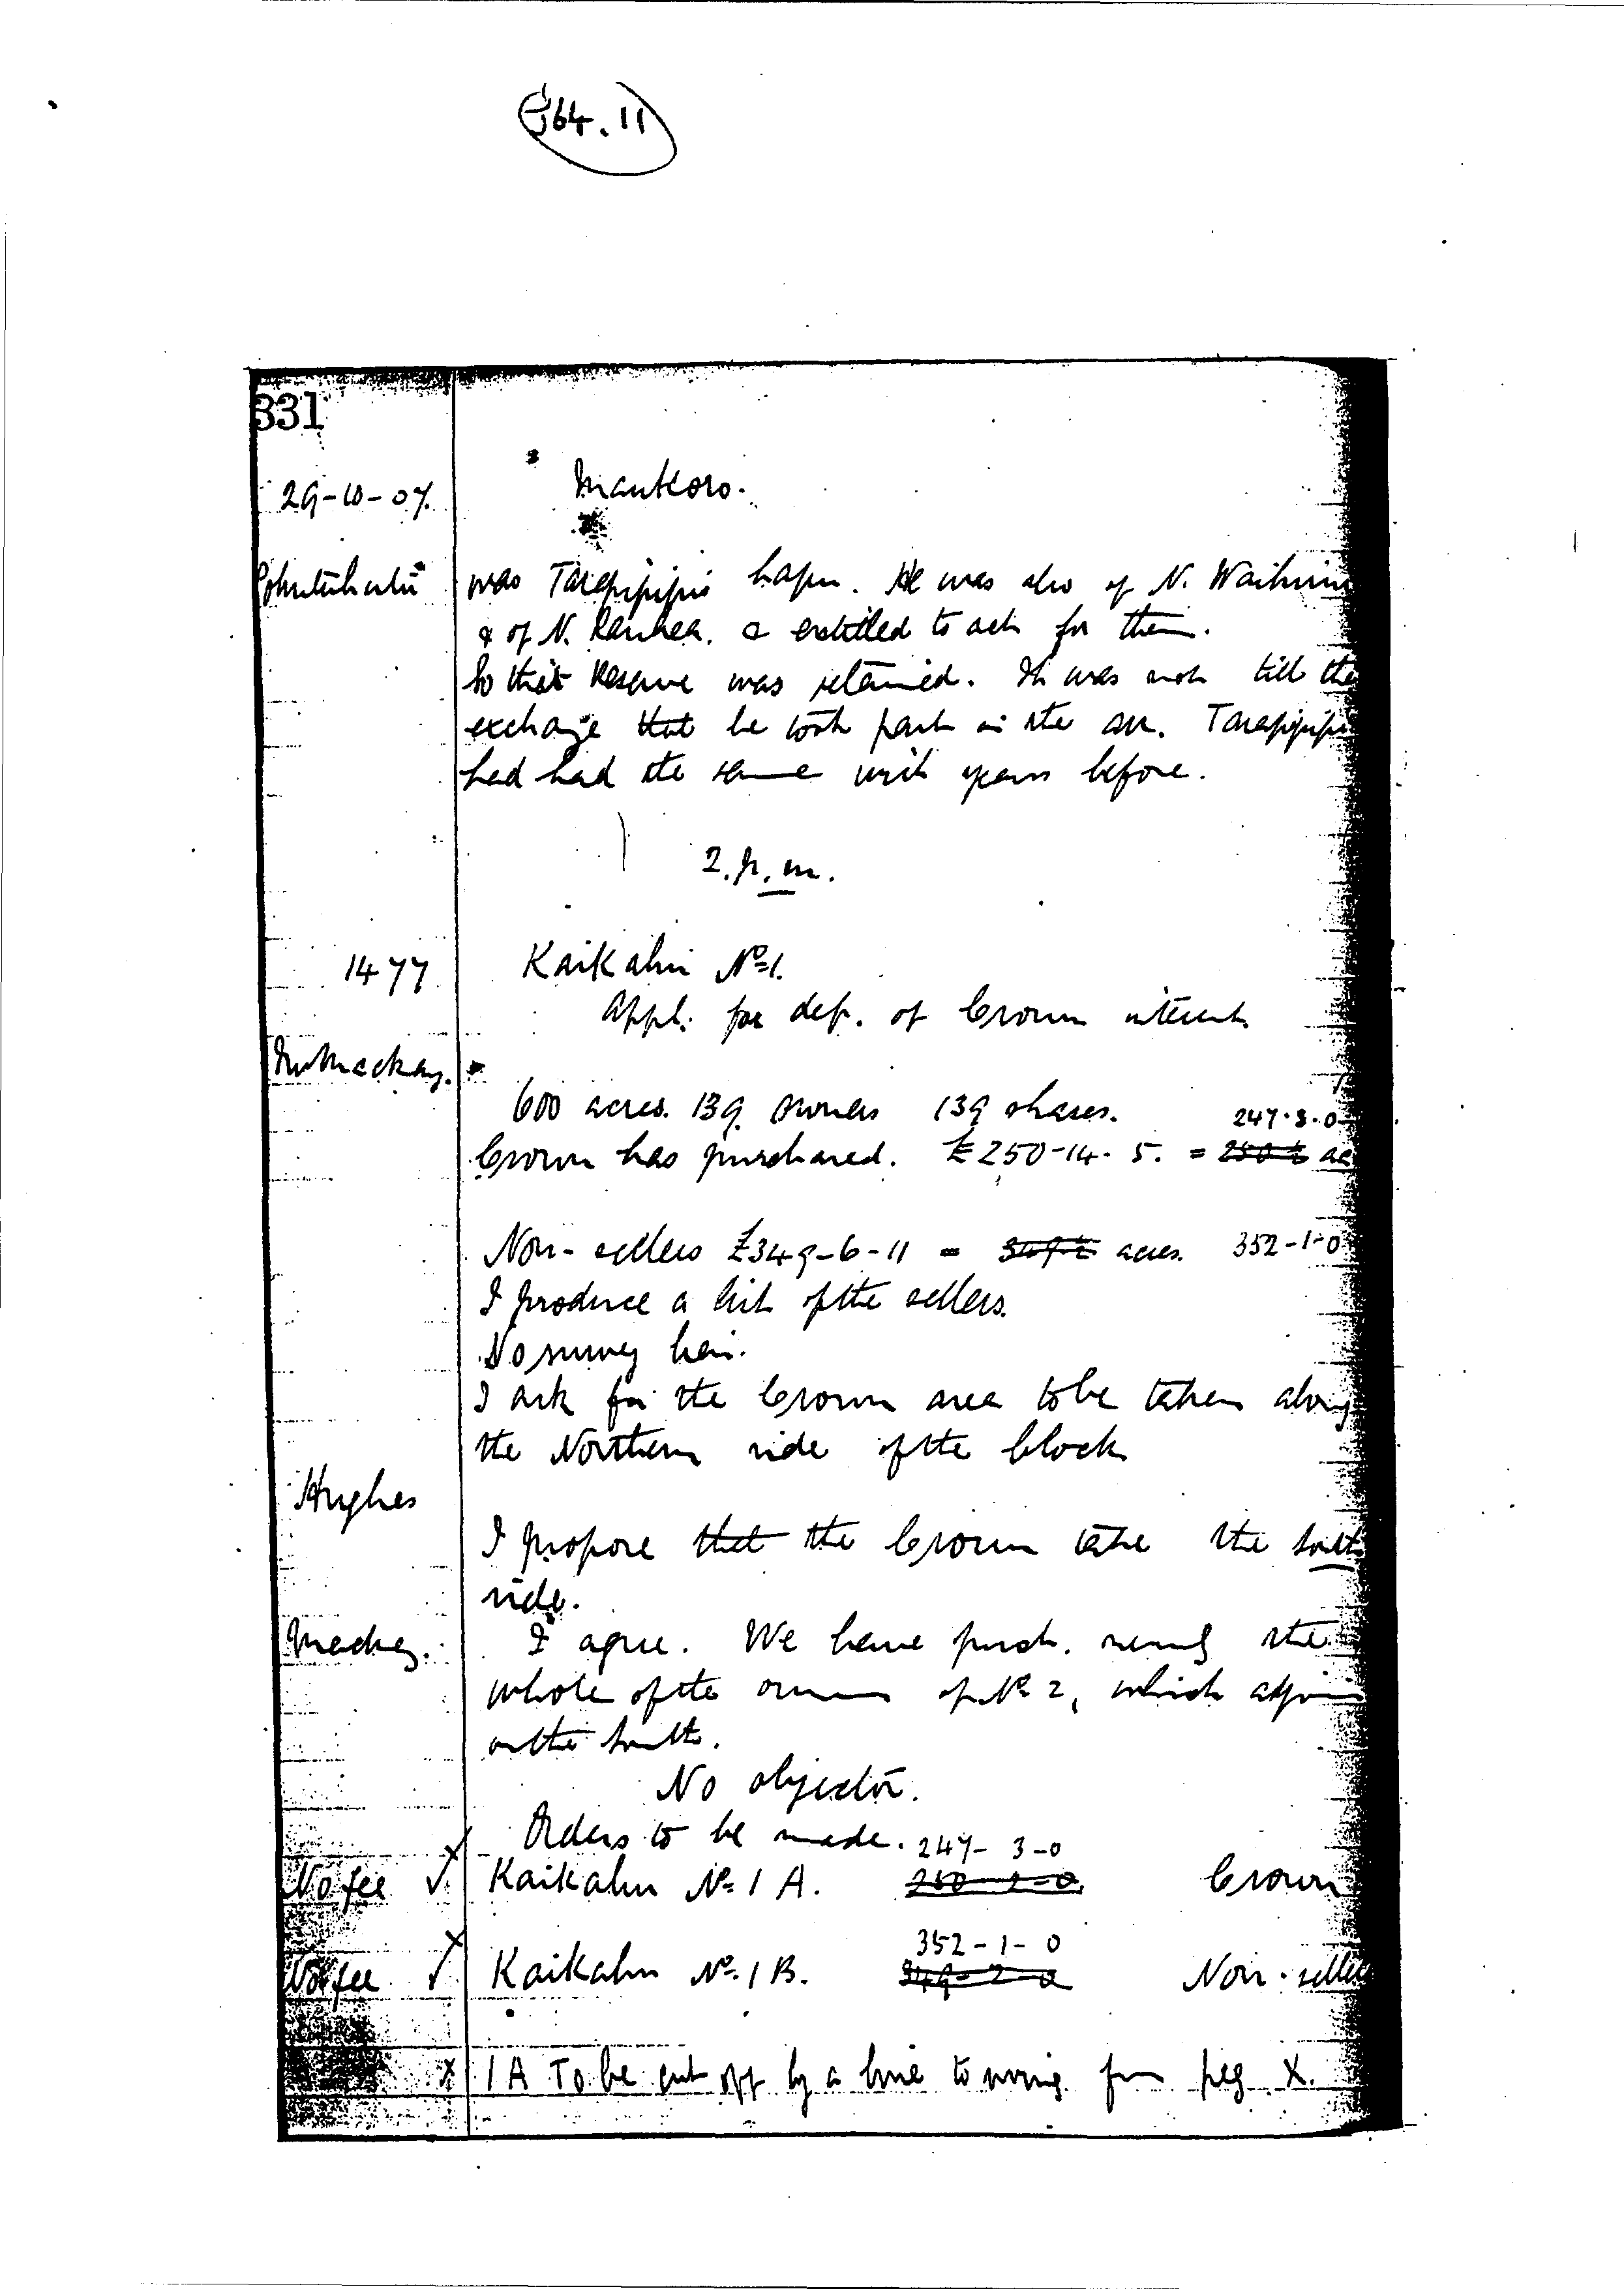 J64.11
331
29-10-07.
Maukoro.
was Tarapipipis hapu. He was also of N.
& of N. & entitled to act for them.
So that Reserve was retained. It was not till the
exchange that he took part in the Tarapipipi
had had the same years before.
2.p.m.
1477
Kaikahu No 1.
Appl: for def. of Crown interest
Mr Mackay.
600 acres. 139 owners 139 shares.
247.3.0
Crown has purchased. £250-14-5. = 250 ac
Non-sellers £349-6-11 = acres. 352-1-0
I produce a list of the sellers.
No survey lien.
I ask for the Crown area to be taken along
the Northern side of the block
Hughes
I propose that the Crown take the South
side.
Mackay.
I agree. We have purch. nearly the
whole of the owners of No 2, which
on the South.
No objector.
Orders to be made. 247-3-0
No fee ✓ Kaikahu No 1 A. 250-2-0 Crown
352-1-0
No fee ✓ Kaikahu No. 1 B. 349-2-0 Non-selle
x 1A To be cut off by a line from peg X.